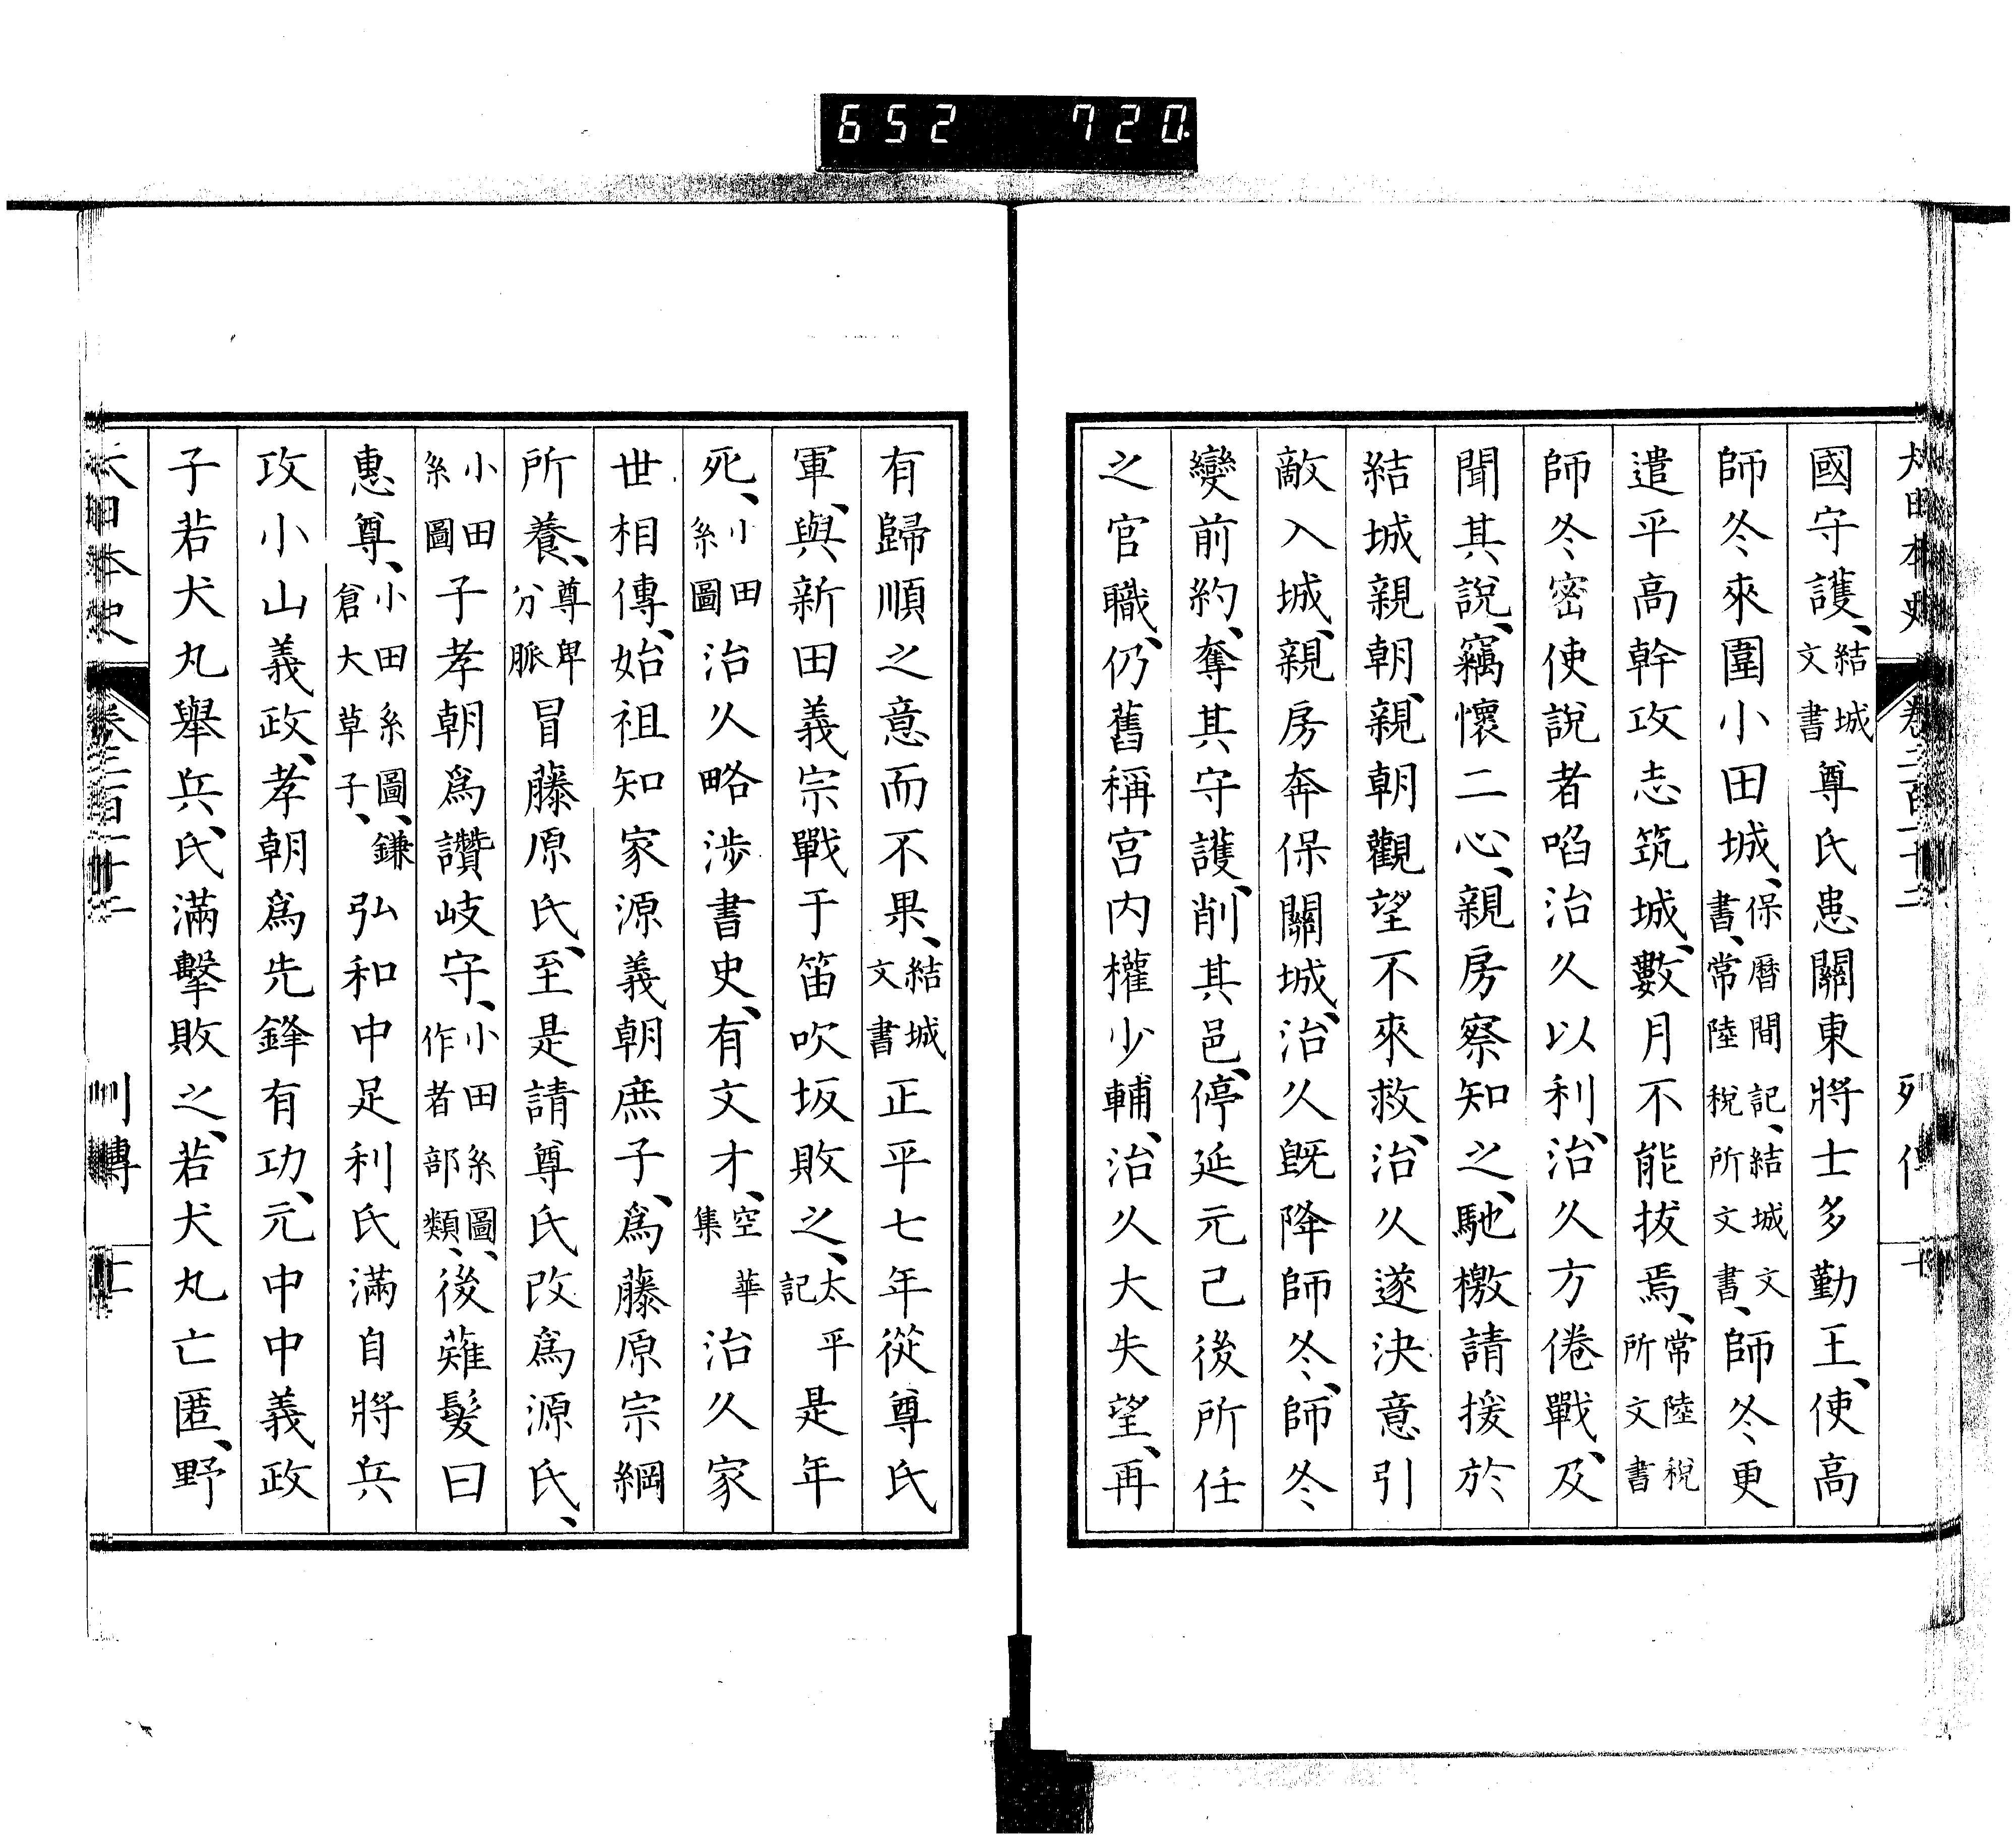 652 720
國守護、結城文書尊氏患關東將士多勤王、使高
師冬來圍小田城、保曆間記、結城文書、常陸稅所文書、師冬更
遣平高幹攻志筑城、數月不能拔焉、常陸稅所文書
師冬密使說者啗治久以利、治久方倦戰、及
聞其說、竊懷二心、親房察知之、馳檄請援於
結城親朝、親朝觀望不來救、治久遂決意引
敵入城、親房奔保關城、治久既降師冬、師冬
變前約、奪其守護、削其邑、停延元己後所任
之官職、仍舊稱宮內權少輔、治久大失望、再
有歸順之意而不果、結城文書正平七年從尊氏
軍、與新田義宗戰于笛吹坂敗之、太平記是年
死、小田系圖治久略涉書史、有文才、空華集治久家
世相傳、始祖知家源義朝庶子、爲藤原宗綱
所養、尊卑分脈冒藤原氏、至是請尊氏改爲源氏、
小田系圖子孝朝爲讚岐守、小田系圖、作者部類、後薙髮曰
惠尊、小田系圖、鎌倉大草子、弘和中足利氏滿自將兵
攻小山義政、孝朝爲先鋒有功、元中中義政
子若犬丸舉兵、氏滿擊敗之、若犬丸亡匿、野